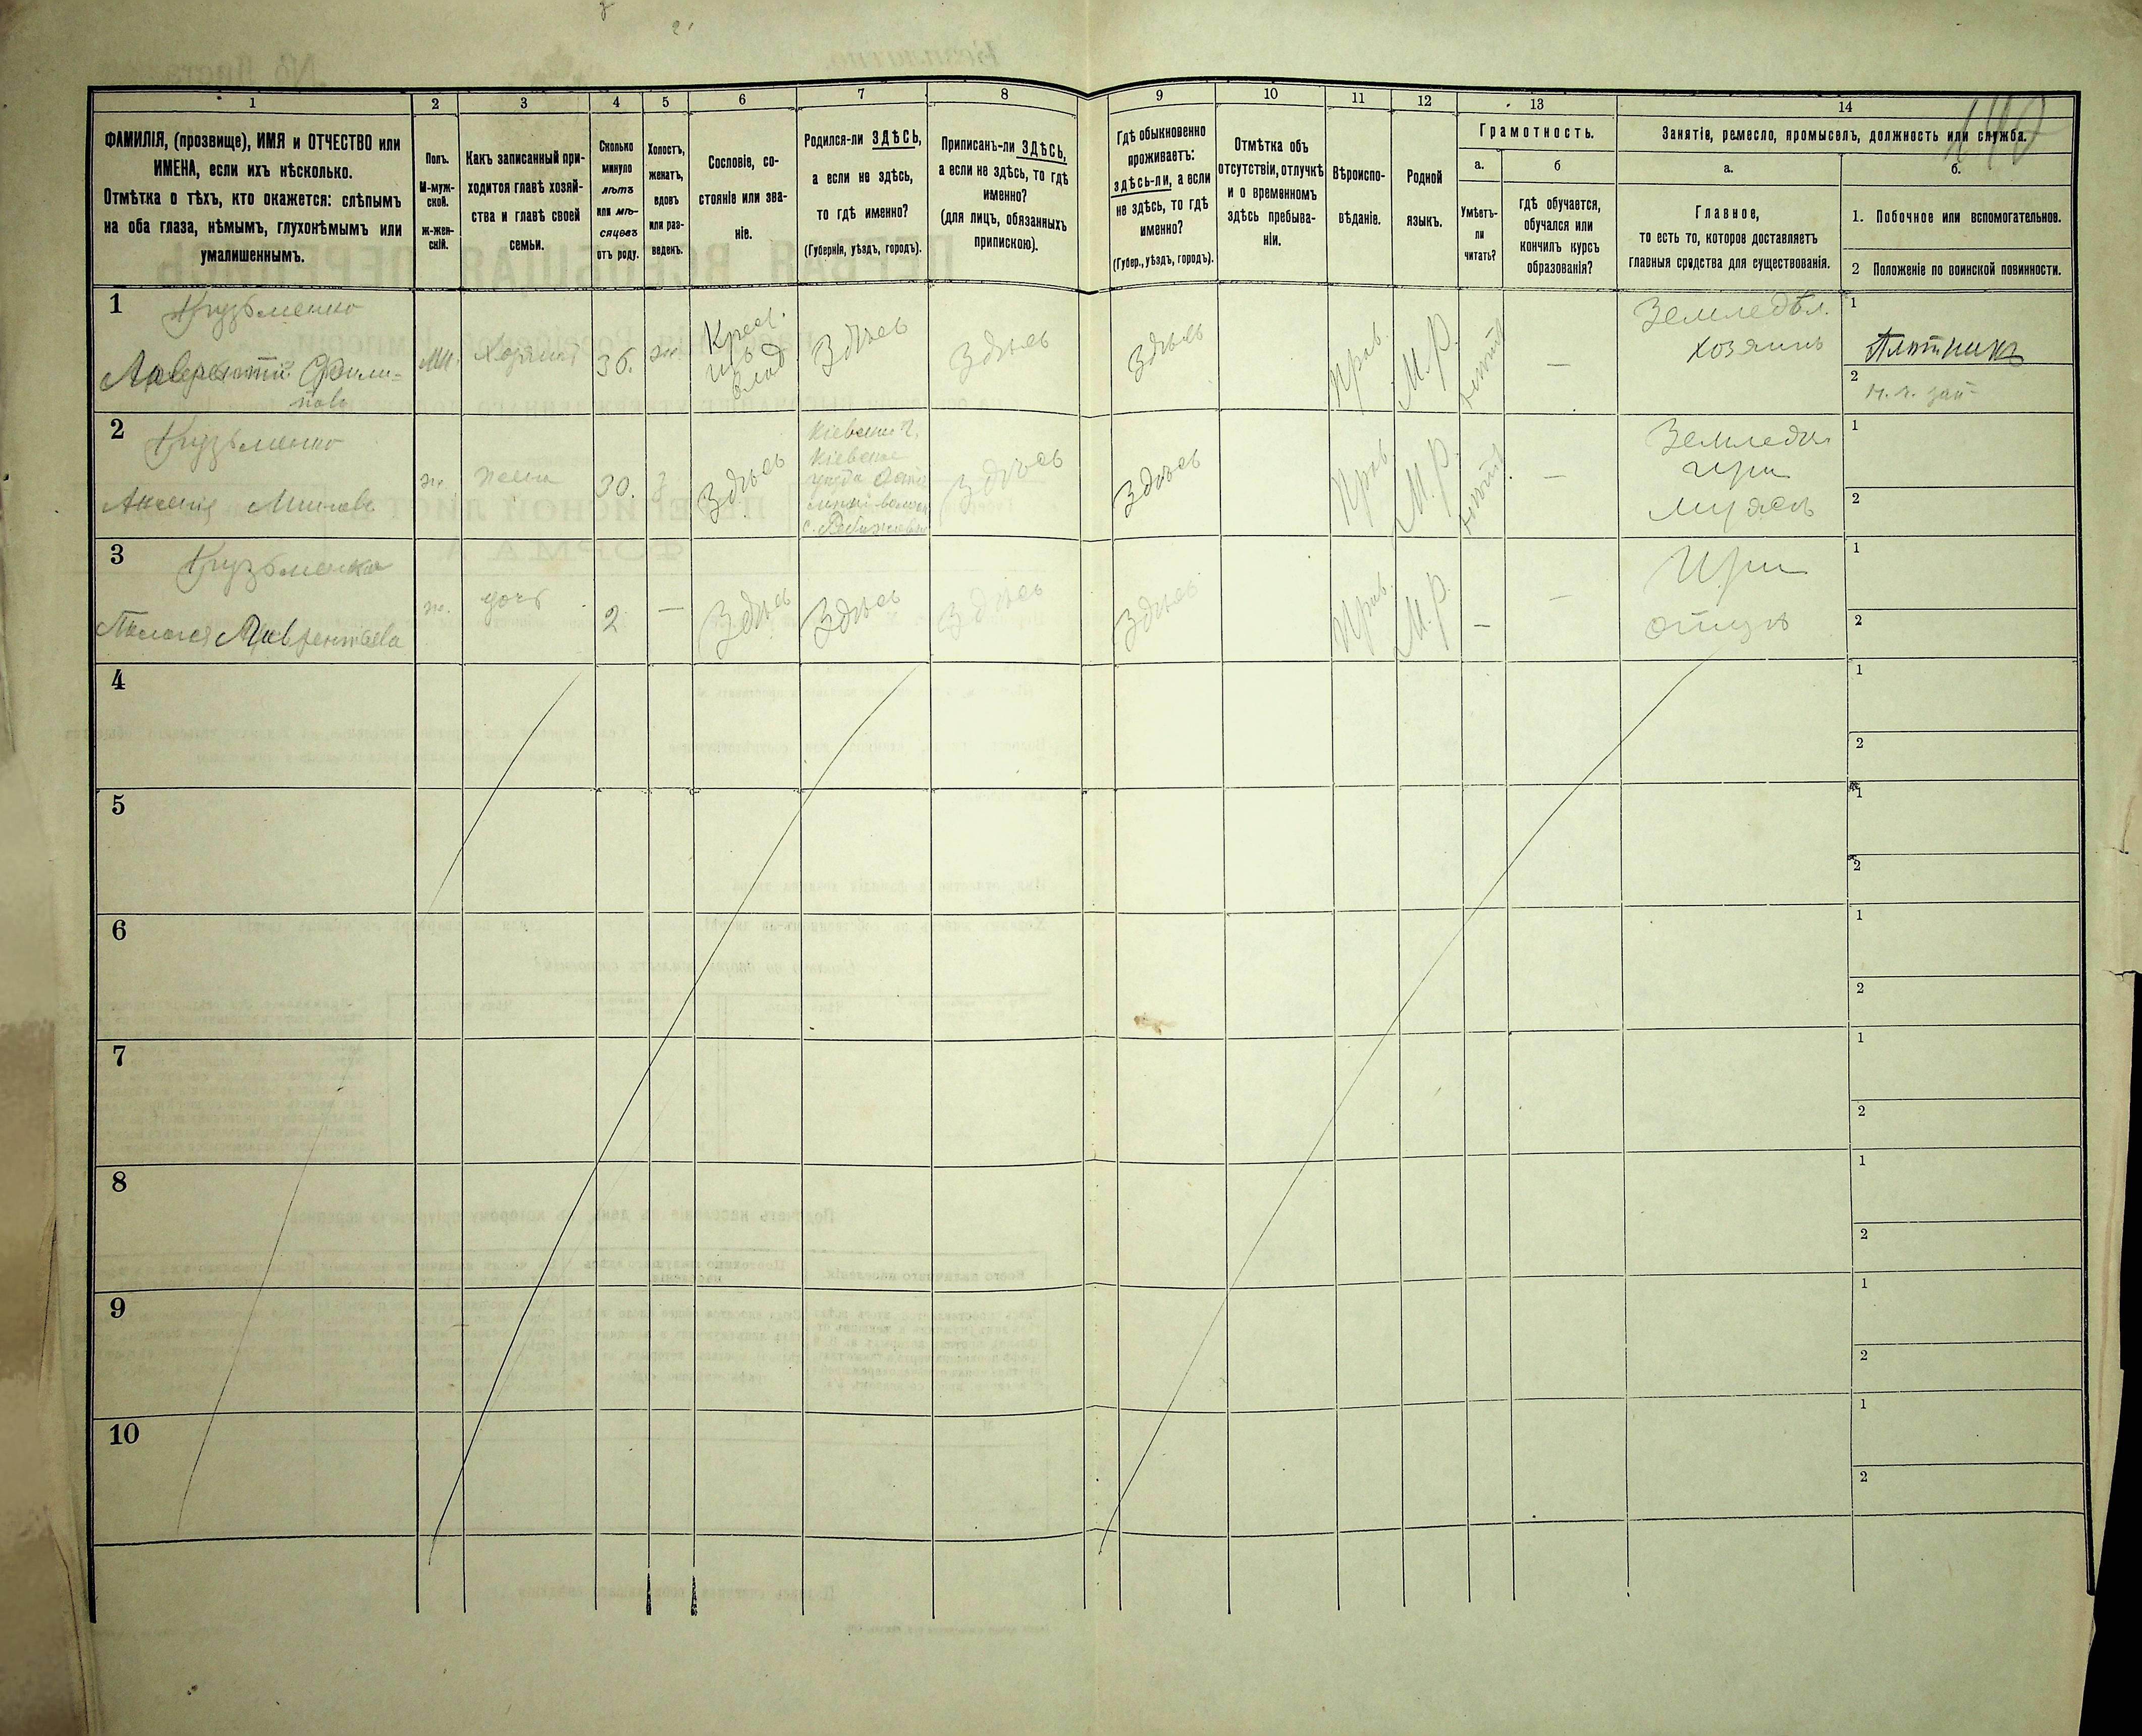 1 2 3 4 5 6 7 8 9 10 11 12 13 14
ФАМИЛІЯ, (прозвище), ИМЯ и ОТЧЕСТВО или
ИМЕНА, если ихъ нѣсколько.
Отмѣтка о тѣхъ, кто окажется: слѣпымъ
на оба глаза, нѣмымъ, глухонѣмымъ или
умалишеннымъ.
Полъ.
М-муж-
ской.
ж-жен-
скій.
Какъ записанный при-
ходится главѣ хозяй-
ства и главѣ своей
семьи.
Сколько
минуло
лѣтъ
или мѣ-
сяцевъ
отъ роду.
Холостъ,
женатъ,
вдовъ
или раз-
веденъ.
Сословіе, со-
стояніе или зва-
ніе.
Родился-ли ЗДѢСЬ,
а если не здѣсь,
то гдѣ именно?
(Губернія, уѣздъ, городъ).
Приписанъ-ли ЗДѢСЬ,
а если не здѣсь, то гдѣ
именно?
(для лицъ, обязанныхъ
припискою).
Гдѣ обыкновенно
проживаетъ:
здѣсь-ли, а если
не здѣсь, то гдѣ
именно?
(Губер., уѣздъ, городъ).
Отмѣтка объ
отсутствіи, отлучкѣ
и о временномъ
здѣсь пребыва-
ніи.
Вѣроиспо-
вѣданіе.
Родной
языкъ.
Грамотность.
а.
Умѣетъ-
ли
читать?
б
гдѣ обучается,
обучался или
кончилъ курсъ
образованія?
Занятіе, ремесло, промыселъ, должность или служба.
а.
Главное,
то есть то, которое доставляетъ
главныя средства для существованія.
б.
1. Побочное или вспомогательное.
2 Положеніе по воинской повинности.
1
Кузьменко
Лаврентій Фили=
повъ
м.
Хозяинъ
36.
ж
Крест.
изъ
влад
Здѣсь
Здѣсь
Здѣсь
Прав.
М.Р.
нѣтъ
—
Земледѣл.
хозяинъ
1
Плотникъ
2
2
Кузьменко
Аксенія
ж.
жена
30.
з
Здѣсь
Кіевской г.
Кіевскаго
уѣзда
Здѣсь
Здѣсь
Прав
М.Р.
нѣтъ
—
Земледѣл
при
мужѣ
1
2
3
Кузьменко
Пелагея Лаврентіева
ж.
дочь
2
—
Здѣсь
Здѣсь
Здѣсь
Здѣсь
Прав.
М.Р.
—
—
При
отцѣ
1
2
4
1
2
5
1
2
6
1
2
7
1
2
8
1
2
9
1
2
10
1
2